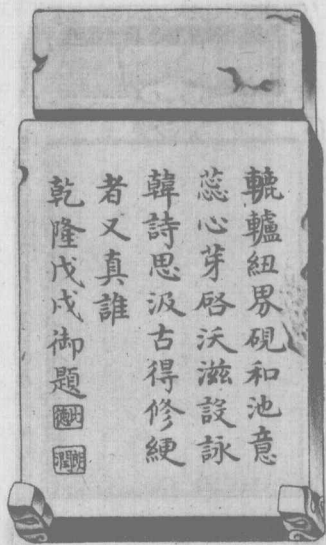 轆轤紐界硯和池意
蕊心芽啓沃滋設詠
韓詩思汲古得修綆
者又真誰
乾隆戊戌御題
比德
朗潤